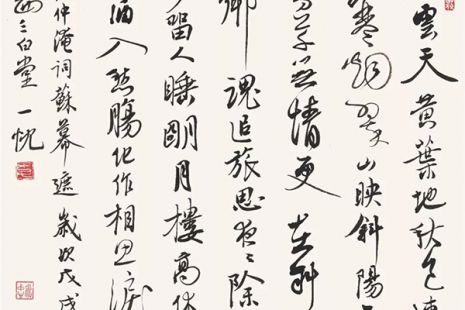 雲天黃葉地秋色連
寒烟翠山映斜陽
芳草無情更在斜
鄉魂追旅思夜〻除
留人睡明月樓高休
酒入愁腸化作相思淚
仲淹詞蘇幕遮歲次戊戌
三白堂一忱